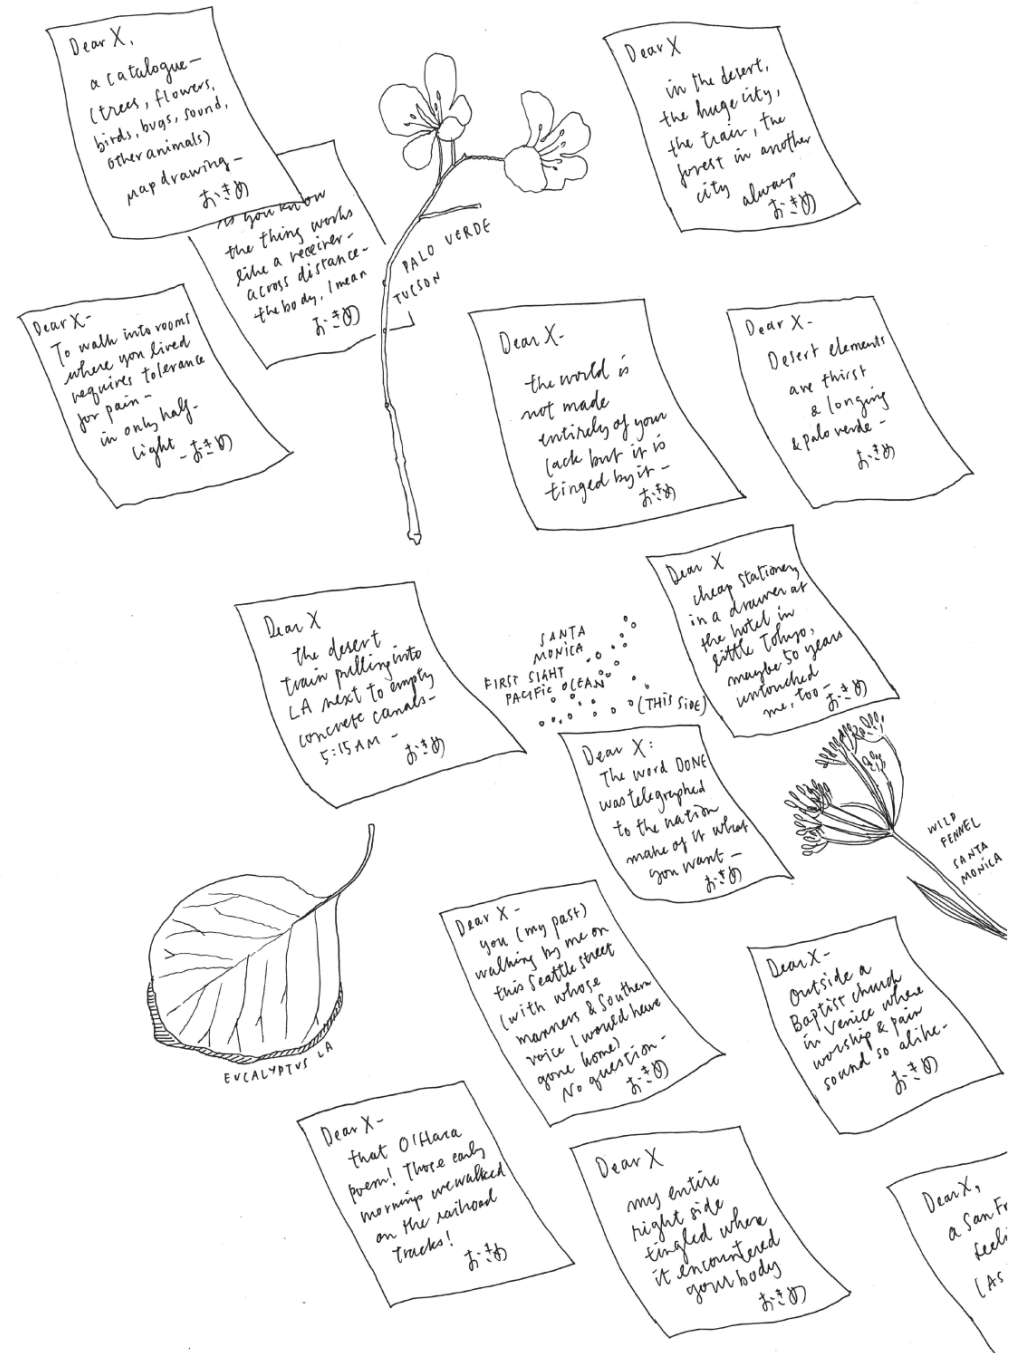 Dear X,
a catalogue—
(trees, flowers,
birds, bugs, sound,
other animals)
map drawing—
おきめ
as you know
the thing works
like a receiver—
across distance—
the body, I mean
おきめ
PALO VERDE
TUCSON
Dear X
in the desert,
the huge city,
the train, the
forest in another
city always
おきめ
Dear X-
To walk into rooms
where you lived
requires tolerance
for pain—
in only half-
light
-おきめ
Dear X-
the world is
not made
entirely of your
lack but it is
tinged by it—
おきめ
Dear X-
Desert elements
are thirst
& longing
& palo verde—
おきめ
Dear X
the desert
train pulling into
LA next to empty
concrete canals—
5:15 AM —
おきめ
SANTA
MONICA
FIRST SIGHT
PACIFIC OCEAN
(THIS SIDE)
Dear X
cheap stationery
in a drawer at
the hotel in
little Tokyo,
maybe 50 years
untouched
me, too—
おきめ
Dear X:
The word DONE
was telegraphed
to the nation
make of it what
you want—
おきめ
WILD
FENNEL
SANTA
MONICA
EUCALYPTUS LA
Dear X-
you (my past)
walking by me on
this Seattle street
(with whose
manners & Southern
voice I would have
gone home)
No question—
おきめ
Dear X-
outside a
Baptist church
in Venice where
worship & pain
sound so alike—
おきめ
Dear X-
that O'Hara
poem! Those early
mornings we walked
on the railroad
tracks!
おきめ
Dear X
my entire
right side
tingled where
it encountered
your body
おきめ
Dear X,
a San Fr
feeli
(As